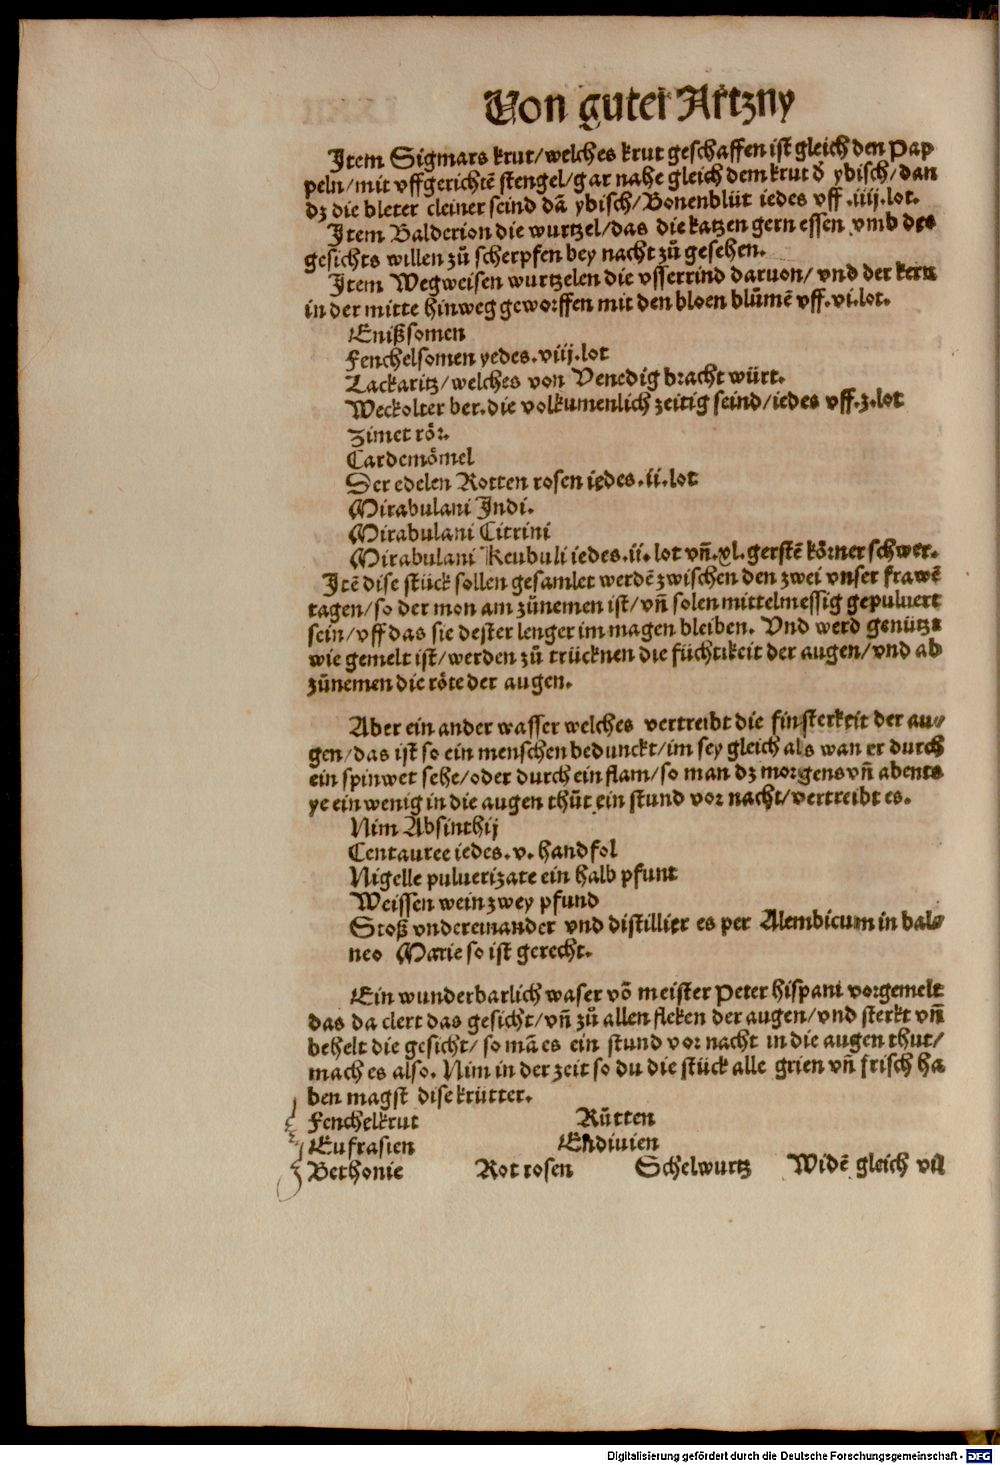 Von guter Artzny
Item Sigmars krut/welches krut geschaffen ist gleich den Pap
peln/mit vffgerichtē stengel/gar nahe gleich dem krut d̕ ybisch/dan
dz die bleter cleiner seind dā ybisch/Bonenblüt iedes vff .iiij.lot.
Item Balderion die wurtzel/das die katzen gern essen vmb des
gesichts willen zů scherpfen bey nacht zů gesehen.
Item Wegweisen wurtzelen die vsserrind daruon/vnd der kern
in der mitte hinweg geworffen mit den bloen blůmē vff.vi.lot.
Enißsomen
Fenchelsomen yedes.viij.lot
Lackaritz/welches von Venedig bracht würt.
Weckolter ber.die volkumenlich zeitig seind/iedes vff.z.lot
Zimet rör.
Cardemömel
Der edelen Rotten rosen iedes.ii.lot
Mirabulani Indi.
Mirabulani Citrini
Mirabulani Keubuli iedes.ii.lot vñ.xl.gerstē körner schwer.
Itē dise stück sollen gesamlet werdē zwischen den zwei vnser frawē
tagen/so der mon am zůnemen ist/vñ solen mittelmessig gepuluert
sein/vff das sie dester lenger im magen bleiben. Vnd werd genützt
wie gemelt ist/werden zů trücknen die füchtikeit der augen/vnd ab
zůnemen die röte der augen.
Aber ein ander wasser welches vertreibt die finsterkeit der au/
gen/das ist so ein menschen bedunckt/im sey gleich als wan er durch
ein spinwet sehe/oder durch ein flam/so man dz morgens vñ abents
ye ein wenig in die augen thůt ein stund vor nacht/vertreibt es.
Nim Absinthij
Centauree iedes.v.handfol
Nigelle puluerizate ein halb pfunt
Weissen wein zwey pfund
Stoß vndereinander vnd distillier es per Alembicum in bal/
neo Marie so ist gerecht.
Ein wunderbarlich waser vō meister Peter hispani vorgemelt
das da clert das gesicht/vñ zů allen fleken der augen/vnd sterkt vñ
behelt die gesicht/so mā es ein stund vor nacht in die augen thut/
mach es also. Nim in der zeit so du die stück alle grien vñ frisch ha
ben magst dise krütter.
Fenchelkrut Rütten
Eufrasien Endiuien
Bethonie Rot rosen Schelwurtz Widē gleich vil
Digitalisierung gefördert durch die Deutsche Forschungsgemeinschaft - DFG